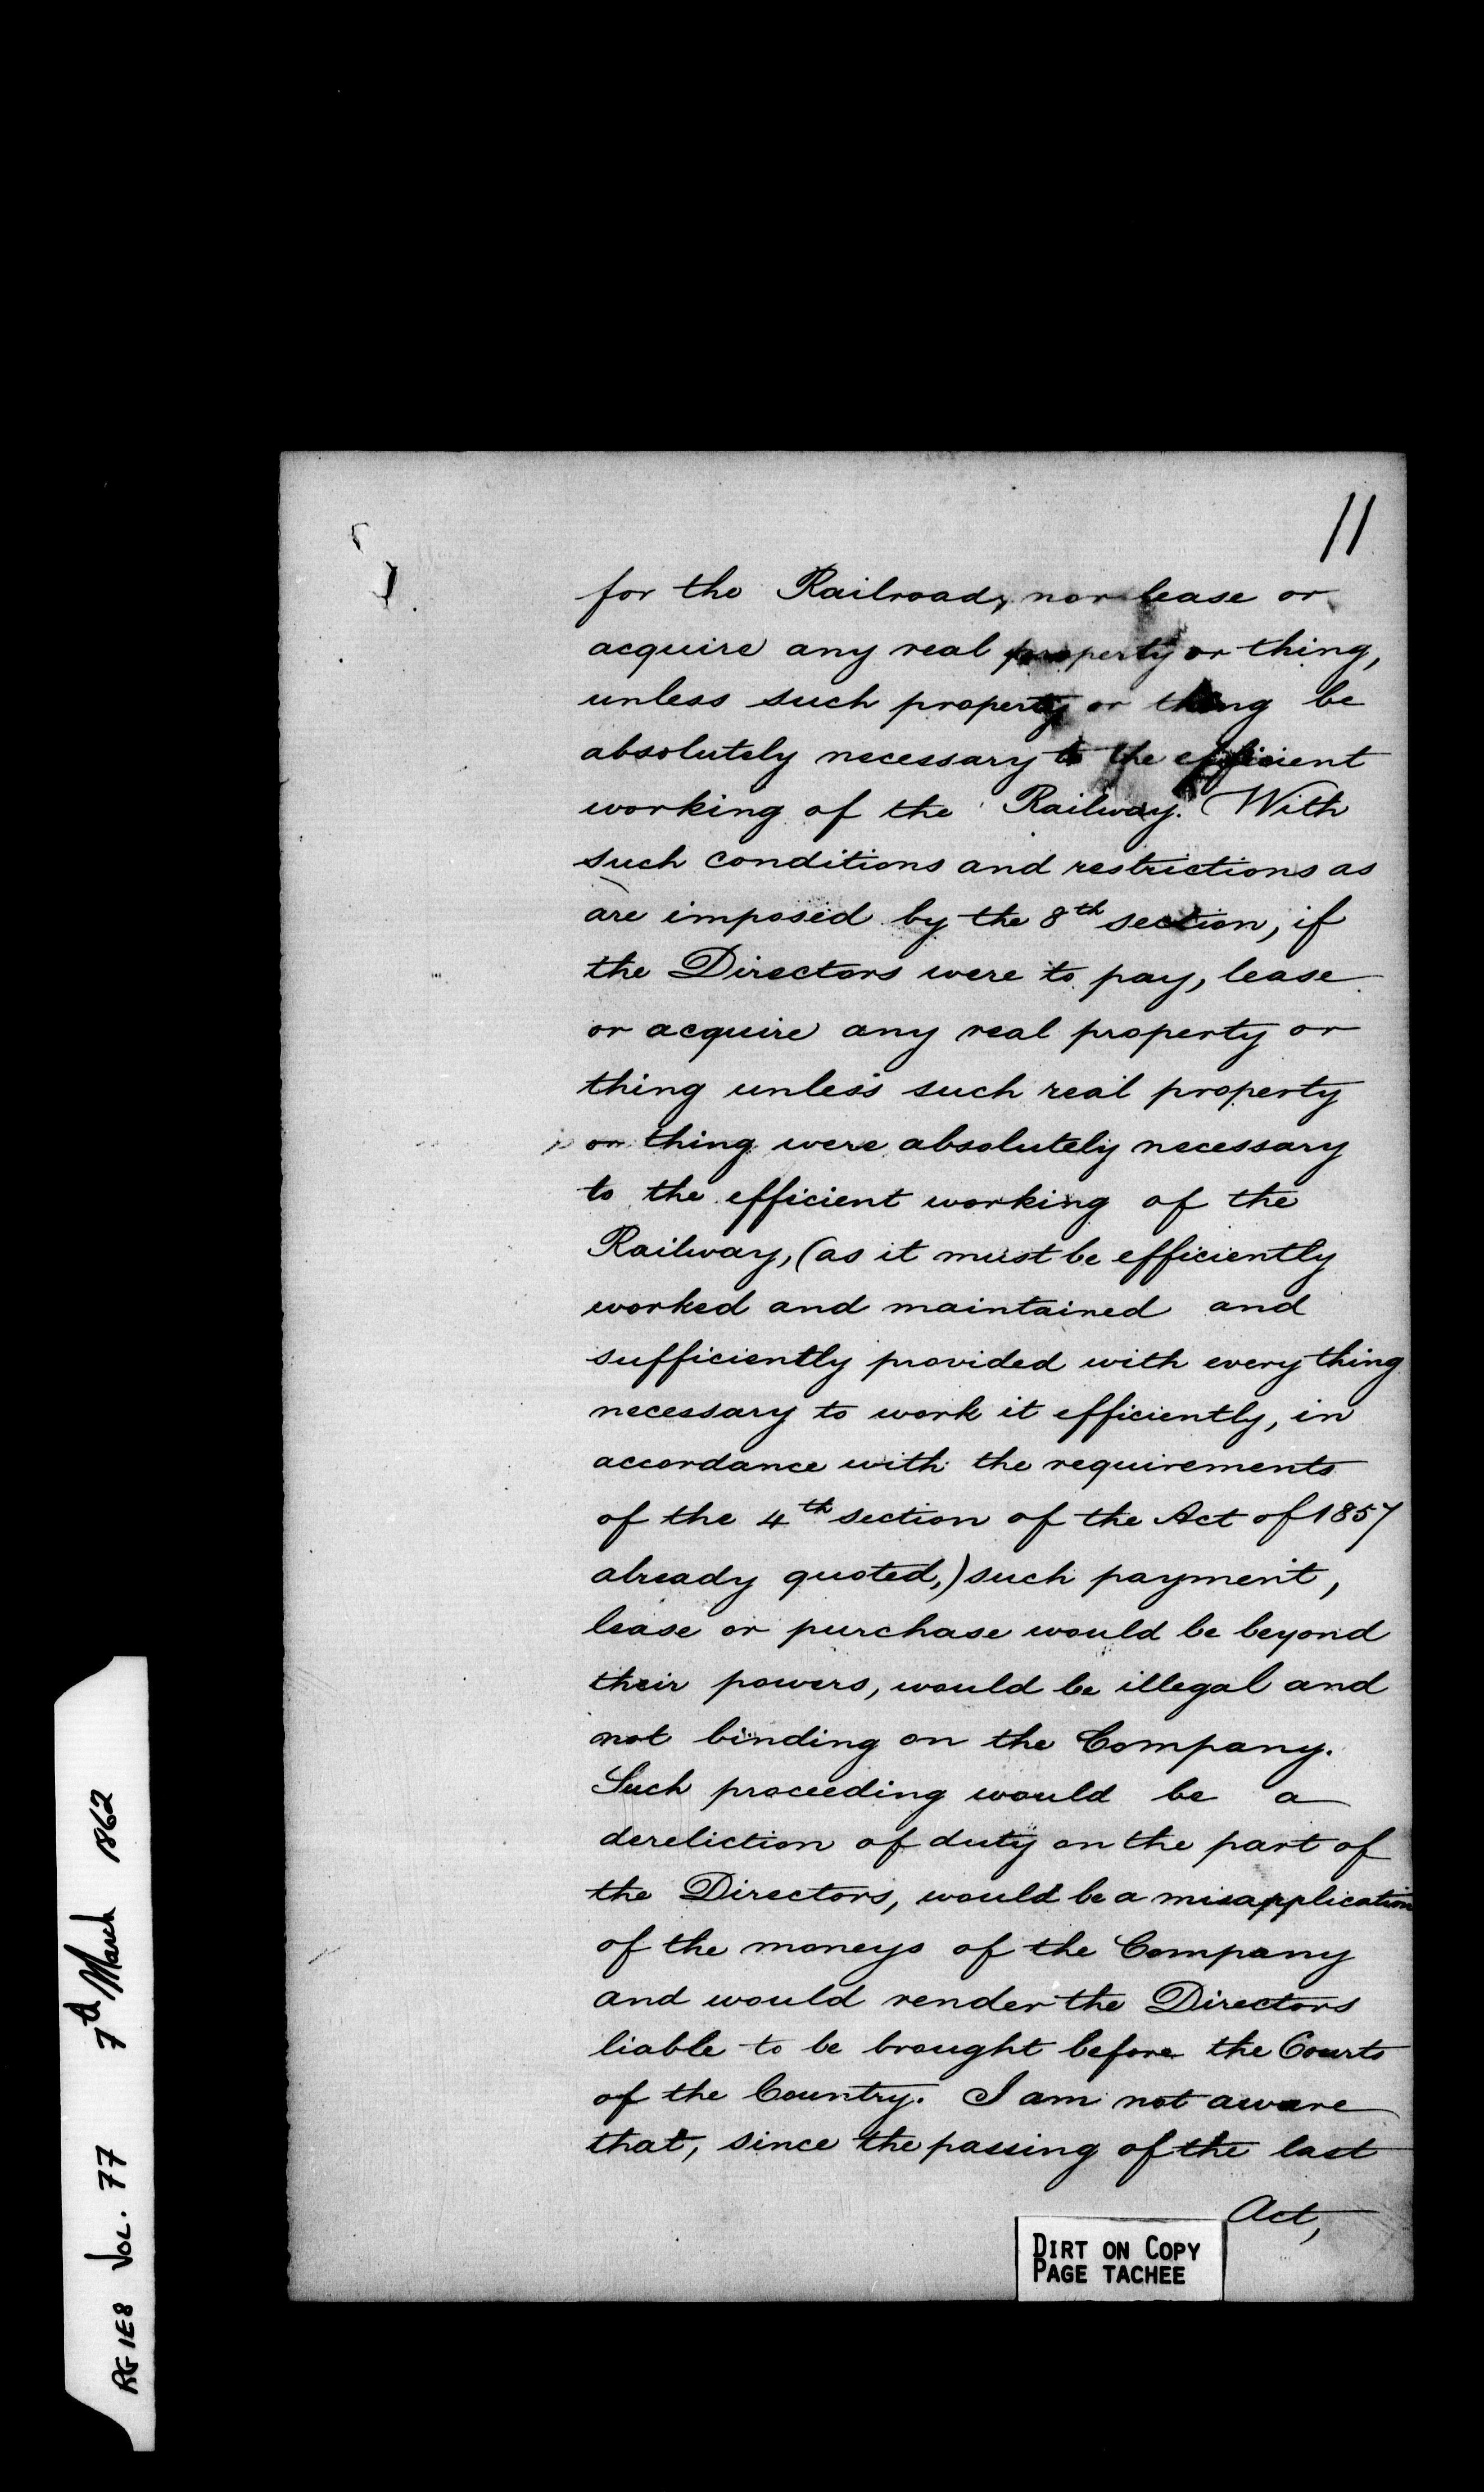 11
for the Railroad, nor lease or
acquire any real property or thing,
unless such property or thing be
absolutely necessary to the efficient
working of the Railway. With
such conditions and restrictions as
are imposed by the 8th section, if
the Directors were to pay, lease
or acquire any real property or
thing unless such real property
or thing were absolutely necessary
to the efficient working of the
Railway, (as it must be efficiently
worked and maintained and
sufficiently provided with every thing
necessary to work it efficiently, in
accordance with the requirements
of the 4th section of the Act of 1857
already quoted,) such payment,
lease or purchase would be beyond
their powers, would be illegal and
not binding on the Company.
Such proceeding would be a
dereliction of duty on the part of
the Directors, would be a misapplication
of the moneys of the Company
and would render the Directors
liable to be brought before the Courts
of the Country. I am not aware
that, since the passing of the last
Act,
DIRT ON COPY
PAGE TACHEE
RG 1E8 VOL. 77 7th March 1862